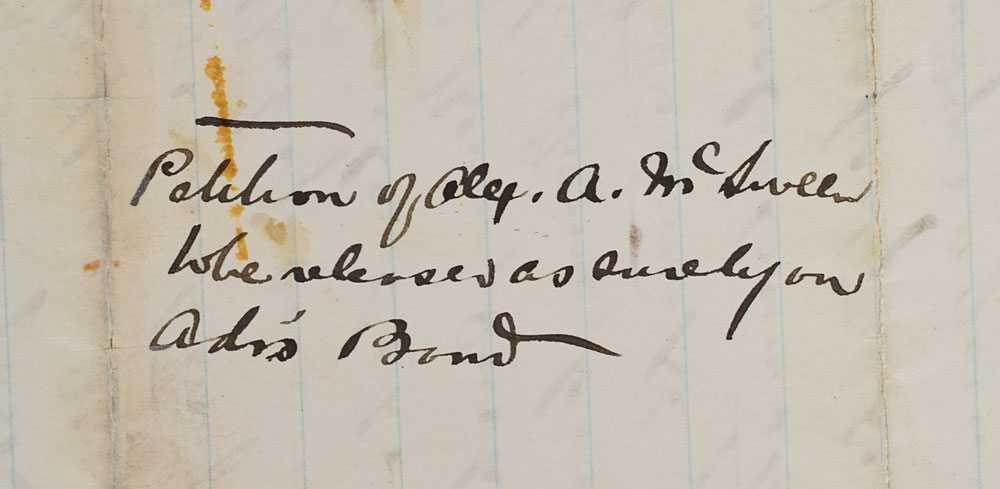 Petition of Alex. A. McSween
to be released as surety on
Adr's Bond